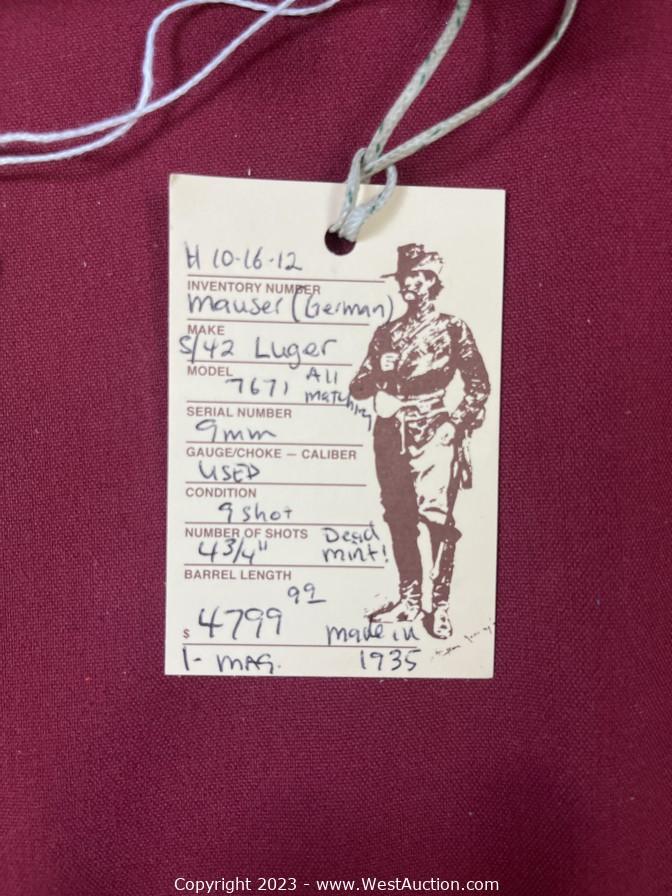 H 10-16-12
INVENTORY NUMBER
Mauser (German)
MAKE
S/42 Luger
MODEL
7671 All matching
SERIAL NUMBER
9mm
GAUGE/CHOKE — CALIBER
USED
CONDITION
9 shot
NUMBER OF SHOTS
4 3/4" Dead mint!
BARREL LENGTH
$ 4799 99
made in 1935
1- MAG.
Copyright 2023 - www.WestAuction.com